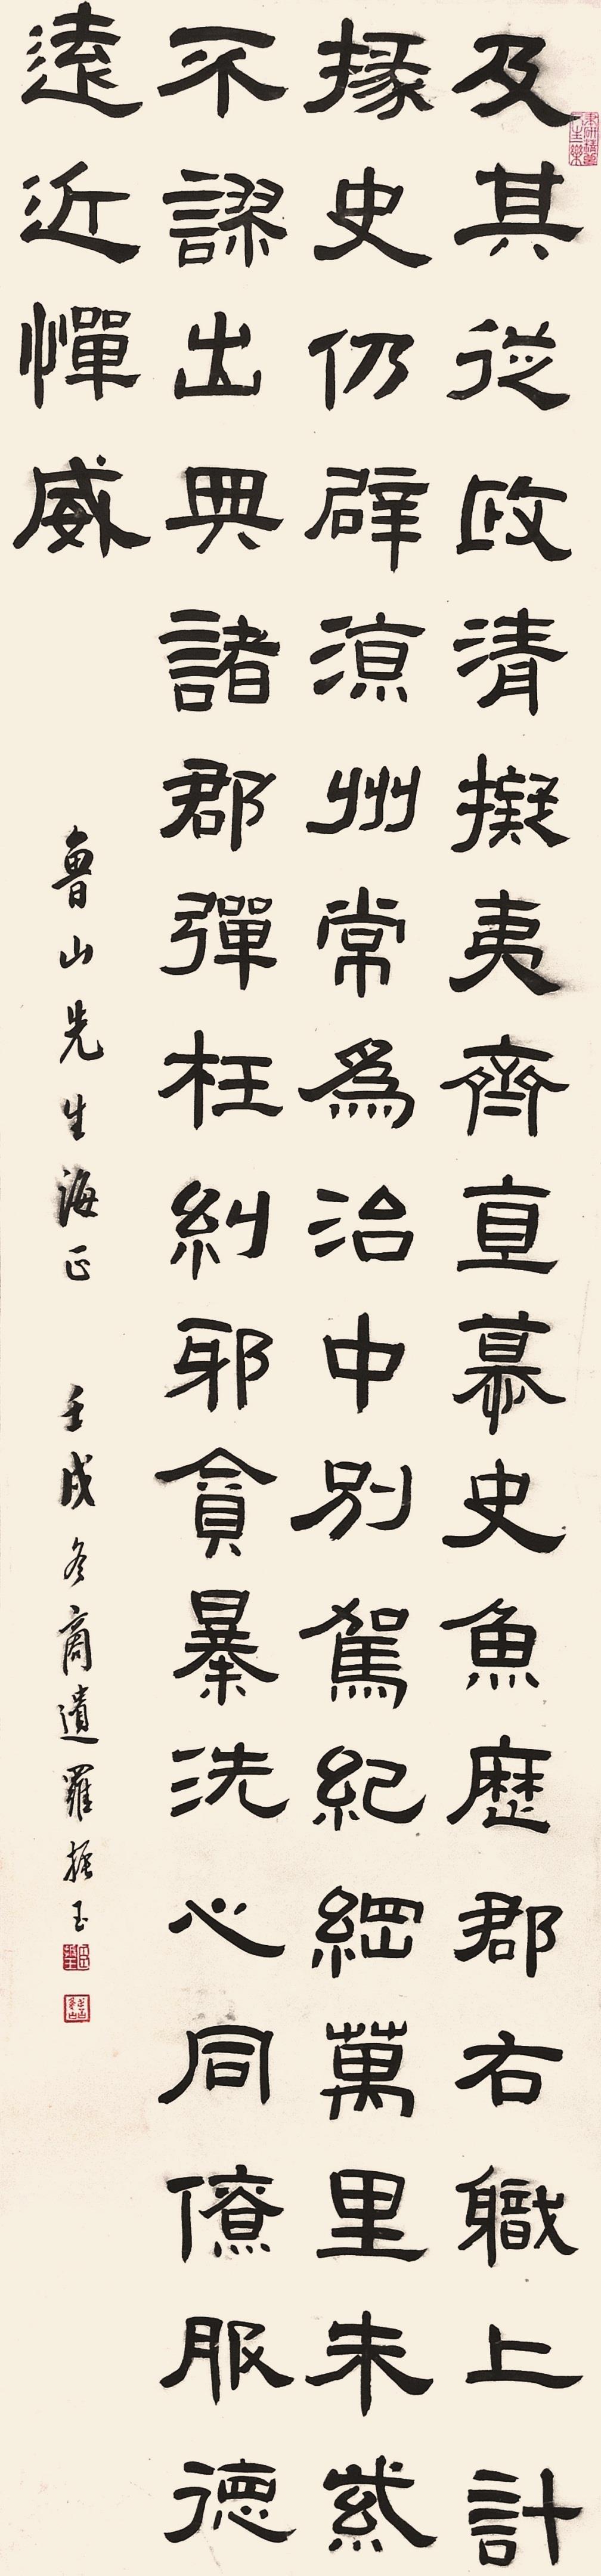 及其從政清擬夷齊直慕史魚歷郡右職上計
掾史仍辟涼州常爲治中別駕紀綱萬里朱紫
不謬出典諸郡彈枉糾邪貪暴洗心同僚服德
遠近憚威
魯山先生誨正 壬戌冬商遺羅振玉